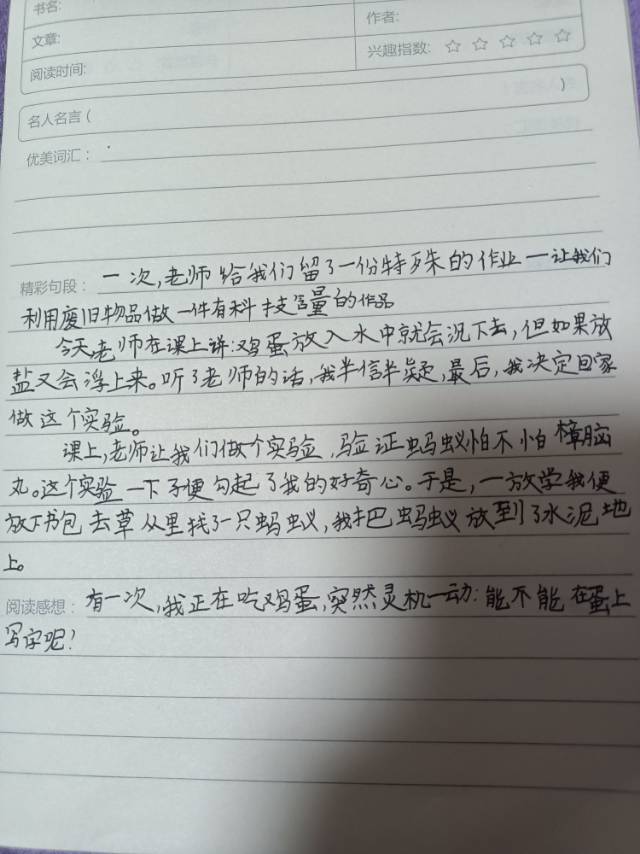 书名:
作者:
文章:
兴趣指数: ☆ ☆ ☆ ☆ ☆
阅读时间:
名人名言 ( )
优美词汇：
精彩句段： 一次,老师给我们留了一份特殊的作业一让我们
利用废旧物品做一件有科技含量的作品
今天,老师在课上讲:鸡蛋放入水中就会沉下去,但如果放
盐又会浮上来。听了老师的话,我半信半疑,最后,我决定回家
做这个实验。
课上,老师让我们做个实验,验证蚂蚁怕不怕樟脑
丸。这个实验一下子便勾起了我的好奇心。于是,一放学我便
放下书包去草丛里找了一只蚂蚁,我把蚂蚁放到了水泥地
上。
阅读感想： 有一次,我正在吃鸡蛋,突然灵机一动:能不能在蛋上
写字呢!